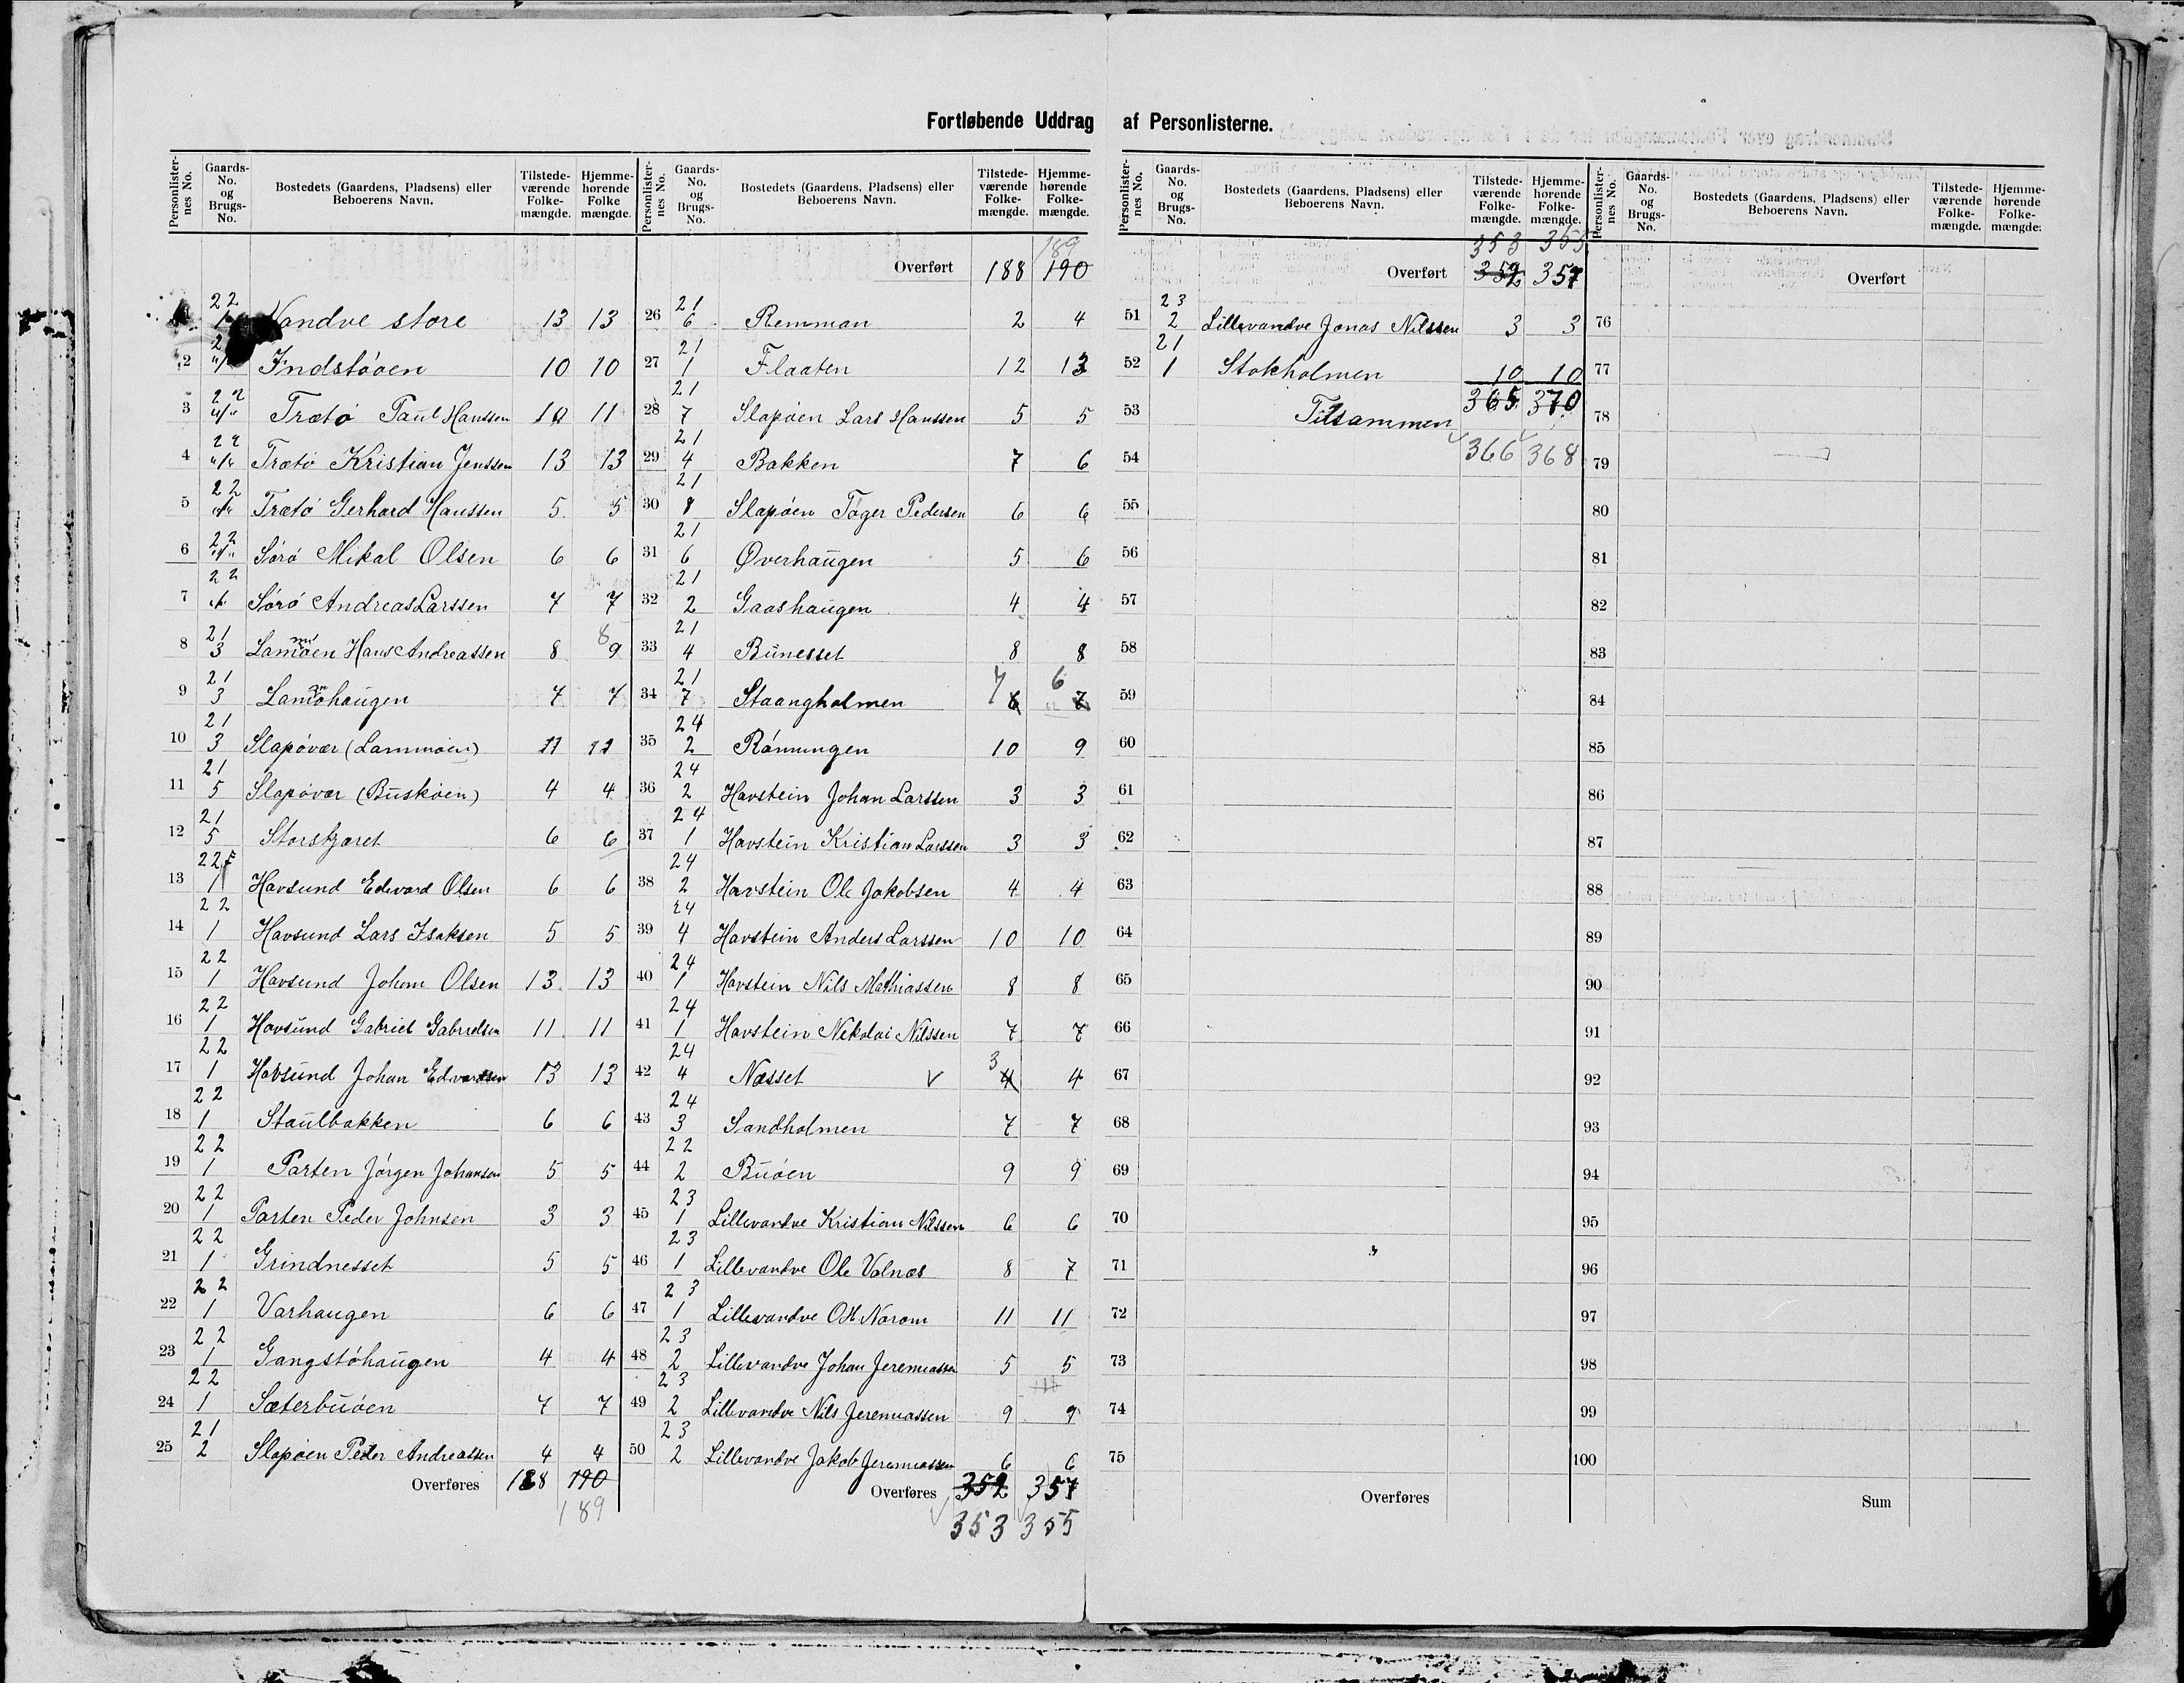 Fortløbende Uddrag af Personlisterne.
Personlister-nes No. Gaards-No. og Brugs-No. Bostedets (Gaardens, Pladsens) eller Beboerens Navn. Tilstede-værende Folke-mængde. Hjemme-hørende Folke mængde.
1 22 1 Vandve store 13 13
2 "/" Indstøoen 10 10
3 22 "/" Trætø Paul Hanssen 10 11
4 22 "/" Trætø Kristian Jenssen 13 13
5 22 "/" Trætø Gerhard Hanssen 5 5
6 22 "/" Sørø Mikal Olsen 6 6
7 22 "/" Sørø Andreas Larssen 7 7
8 21 3 Lamøen Hans Andreassen 8 8 9
9 21 3 Lamøhaugen 7 7
10 21 3 Slapøvær (Lammøen) 11 11
11 21 5 Slapøvær (Buskøen) 4 4
12 21 5 Storskjæret 6 6
13 22 1 Havsund Edvard Olsen 6 6
14 22 1 Havsund Lars Isaksen 5 5
15 22 1 Havsund Johan Olsen 13 13
16 22 1 Havsund Gabriel Gabrielsen 11 11
17 22 1 Havsund Johan Edvardsen 13 13
18 22 1 Staulbakken 6 6
19 22 1 Parten Jørgen Johansen 5 5
20 22 1 Parten Peder Johnsen 3 3
21 22 1 Grindnesset 5 5
22 22 1 Varhaugen 6 6
23 22 1 Gangstøhaugen 4 4
24 22 1 Sæterbuøen 7 7
25 21 2 Slapøen Peder Andreassen 4 4
Overføres 188 190
189
Personlister-nes No. Gaards-No. og Brugs-No. Bostedets (Gaardens, Pladsens) eller Beboerens Navn. Tilstede-værende Folke-mængde. Hjemme-hørende Folke-mængde.
189
Overført 188 190
26 21 6 Remman 2 4
27 21 1 Flaaten 12 13
28 21 7 Slapøen Lars Hanssen 5 5
29 21 4 Bakken 7 6
30 21 8 Slapøen Tøger Pedersen 6 6
31 21 6 Øverhaugen 5 6
32 21 2 Gaashaugen 4 4
33 21 4 Bunesset 8 8
34 21 7 Staangholmen 7 6 6 7
35 24 2 Rønningen 10 9
36 24 2 Havstein Johan Larssen 3 3
37 24 1 Havstein Kristian Larssen 3 3
38 24 2 Havstein Ole Jakobsen 4 4
39 24 4 Havstein Anders Larssen 10 10
40 24 1 Havstein Nils Mathiassen 8 8
41 24 1 Havstein Nikolai Nilssen 7 7
42 24 4 Næsset 3 4 4
43 24 3 Sandholmen 7 7
44 22 2 Buøen 9 9
45 23 1 Lillevandve Kristian Nilssen 6 6
46 23 1 Lillevandve Ole Valnæs 8 7
47 23 1 Lillevandve 11 11
48 23 2 Lillevandve Johan Jeremiassen 5 5
49 23 2 Lillevandve Nils Jeremiassen 9 9
50 23 2 Lillevandve Jakob Jeremiassen 6 6
Overføres 352 357
353 355
Personlister-nes No. Gaards-No. og Brugs-No. Bostedets (Gaardens, Pladsens) eller Beboerens Navn. Tilstede-værende Folke-mængde. Hjemme-hørende Folke-mængde.
353 355
Overført 352 357
51 23 2 Lillevandve Jonas Nilssen 3 3
52 21 1 Stokholmen 10 10
53 Tilsammen 365 370
54 366 368
55
56
57
58
59
60
61
62
63
64
65
66
67
68
69
70
71
72
73
74
75
Overføres
Personlister-nes No. Gaards-No. og Brugs-No. Bostedets (Gaardens, Pladsens) eller Beboerens Navn. Tilstede-værende Folke-mængde. Hjemme-hørende Folke-mængde.
Overført
76
77
78
79
80
81
82
83
84
85
86
87
88
89
90
91
92
93
94
95
96
97
98
99
100
Sum